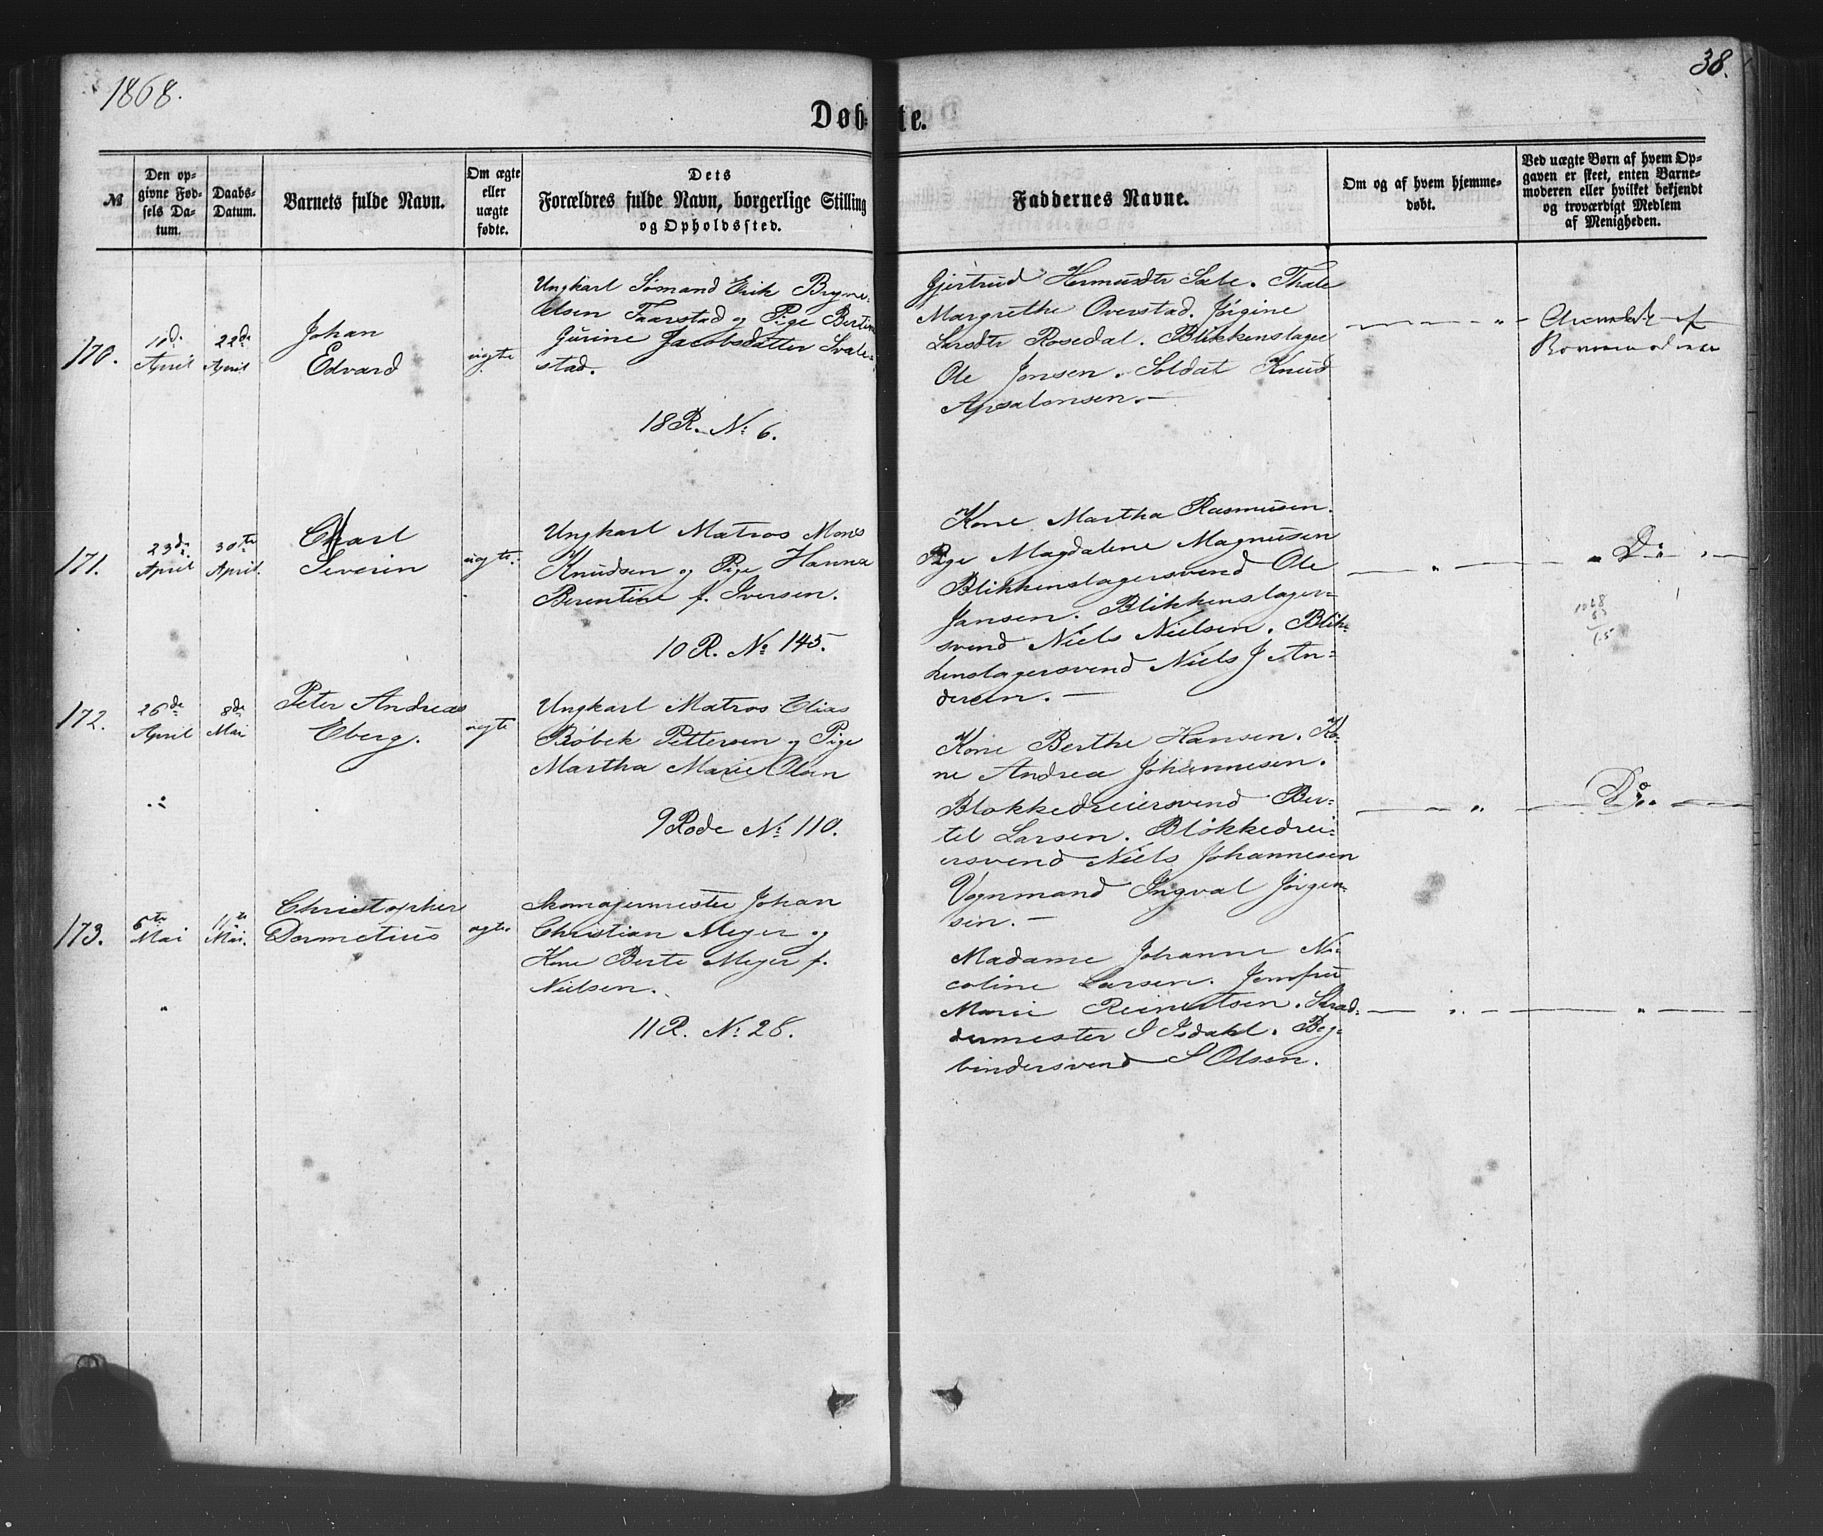 1868.
38.
Døbte.
№
Den opgivne Fødsels Datum.
Daabs-Datum.
Barnets fulde Navn.
Om ægte eller uægte fødte.
Dets Forældres fulde Navn, borgerlige Stilling og Opholdssted.
Faddernes Navne.
Om og af hvem hjemmedøbt.
Ved uægte Børn af hvem Opgaven er skeet, enten Barnemoderen eller hvilket bekjendt og troværdigt Medlem af Menigheden.
170.
10de April
22de April
Johan
Edvard
uægte
Ungkarl Sømand Erik Bryne
Olsen Taarstad og Pige Bertine
Gurine Jacobsdatter Svale-
stad.
18 R. No 6.
Gjertrud Hermundtr Sæle. Thale
Margrethe Overstad. Jørgine
Larsdtr Rosedal. Blikkenslager
Ole Jonsen. Soldat Knud
Apsalonsen. —
Anmeldt af
Barnemoderen
171.
23de April
30te April.
Charl
Severin
uægte.
Ungkarl Matros Mons
Knudsen og Pige Hanna
Berentine f. Iversen.
10 R. No 145.
Kone Martha Rasmusen.
Pige Magdalene Magnusen
Blikkenslagersvend Ole
Jansen. Blikkenslager-
svend Niels Nielsen. Blik-
kenslagersvend Niels J An-
dersen. —
Do
172.
26de April
8de Mai
Peter Andreas
Eberg.
uægte
Ungkarl Matros Elias
Bøbek Pettersen og Pige
Martha Marie Olsen
9 Rode No 110.
Kone Berthe Hansen. Ko-
ne Andrea Johannesen.
Blokkedreiersvend Ber-
tel Larsen. Blokkedrei-
ersvend Niels Johannesen
Vognmand Ingval Jørgen-
sen. —
Do
173.
6te Mai
11te Mai.
Christopher
Dermetius
ægte
Skomagermester Johan
Christian Meyer og
Kone Berte Meyer f.
Nielsen.
11 R. No 28.
Madame Johanne Ni-
coline Larsen. Jomfru
Marie Reinertsen. Skræd-
dermester I Isdahl. Bog-
bindersvend S Olsen.